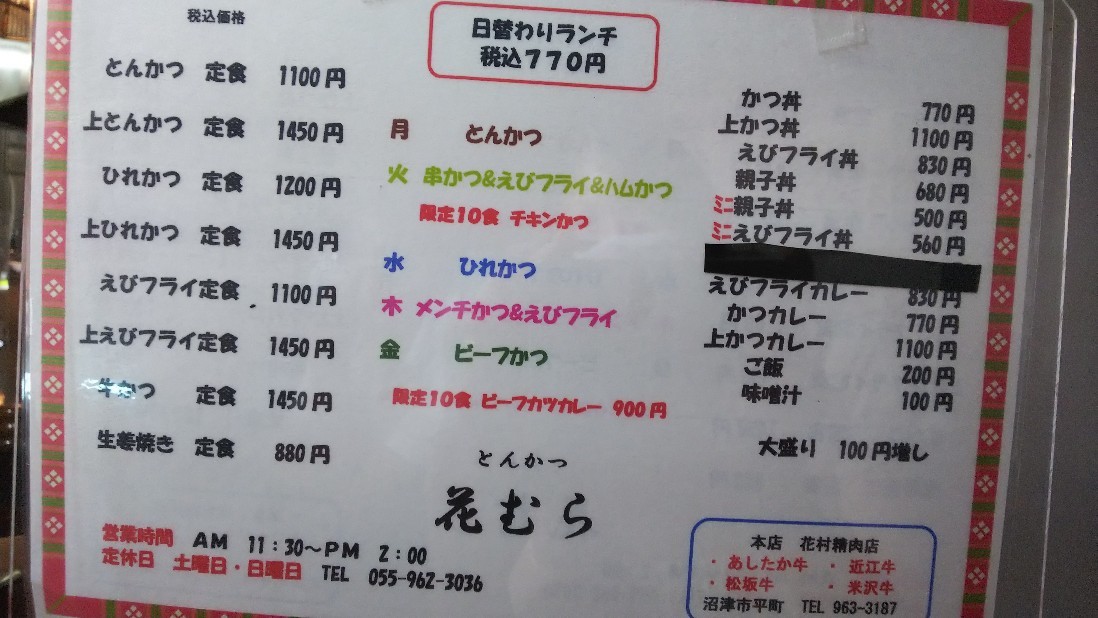 税込価格
とんかつ 定食 1100円
上とんかつ 定食 1450円
ひれかつ 定食 1200円
上ひれかつ 定食 1450円
えびフライ定食 1100円
上えびフライ定食 1450円
牛かつ 定食 1450円
生姜焼き 定食 880円
日替わりランチ
税込770円
月 とんかつ
火 串かつ&えびフライ&ハムかつ
限定10食 チキンかつ
水 ひれかつ
木 メンチかつ&えびフライ
金 ビーフかつ
限定10食 ビーフカツカレー 900円
かつ丼 770円
上かつ丼 1100円
えびフライ丼 830円
親子丼 680円
ミニ親子丼 500円
ミニえびフライ丼 560円
えびフライカレー 830円
かつカレー 770円
上かつカレー 1100円
ご飯 200円
味噌汁 100円
大盛り 100円増し
とんかつ
花むら
営業時間 AM 11:30~PM 2:00
定休日 土曜日・日曜日 TEL 055-962-3036
本店 花村精肉店
・あしたか牛 ・近江牛
・松坂牛 ・米沢牛
沼津市平町 TEL 963-3187